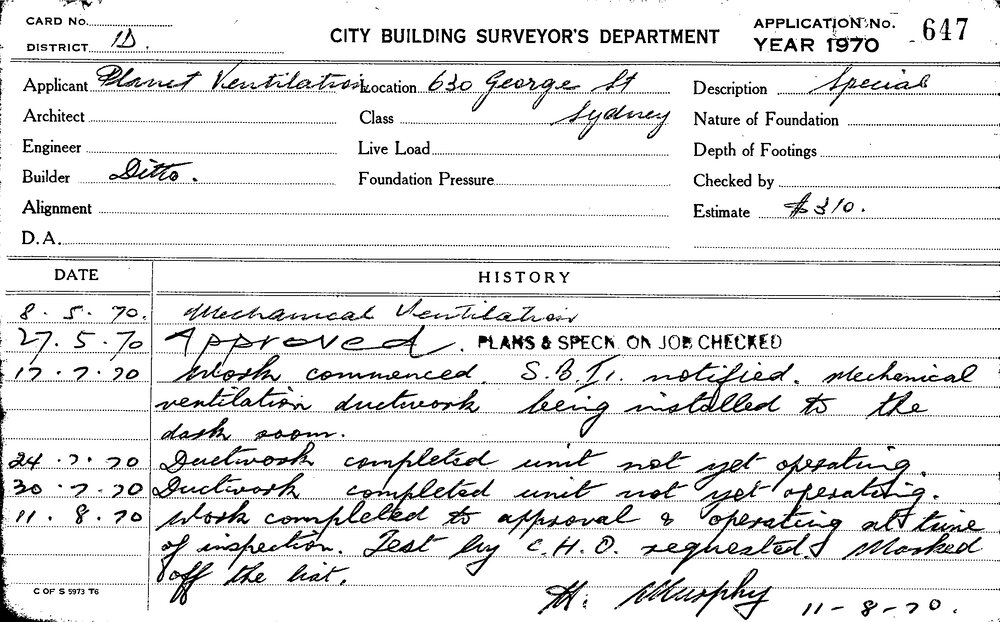 CARD No.
DISTRICT 1D.
CITY BUILDING SURVEYOR'S DEPARTMENT
APPLICATION No. 647
YEAR 1970
Applicant Planet Ventilation Location 630 George St Description Special
Architect Class Sydney Nature of Foundation
Engineer Live Load Depth of Footings
Builder Ditto. Foundation Pressure Checked by
Alignment Estimate $310.
D.A.
DATE HISTORY
8. 5. 70. Mechanical Ventilation
27. 5. 70 Approved. PLANS & SPECN. ON JOB CHECKED
17. 7. 70 Work commenced. S.B.I. notified. Mechanical
ventilation ductwork being installed to the
dark room.
24. 7. 70 Ductwork completed unit not yet operating.
30. 7. 70 Ductwork completed unit not yet operating.
11. 8. 70 Work completed to approval & operating at time
of inspection. Test by C.H.O. requested. Marked
off the list.
C OF S 5973 T6
Murphy 11-8-70.